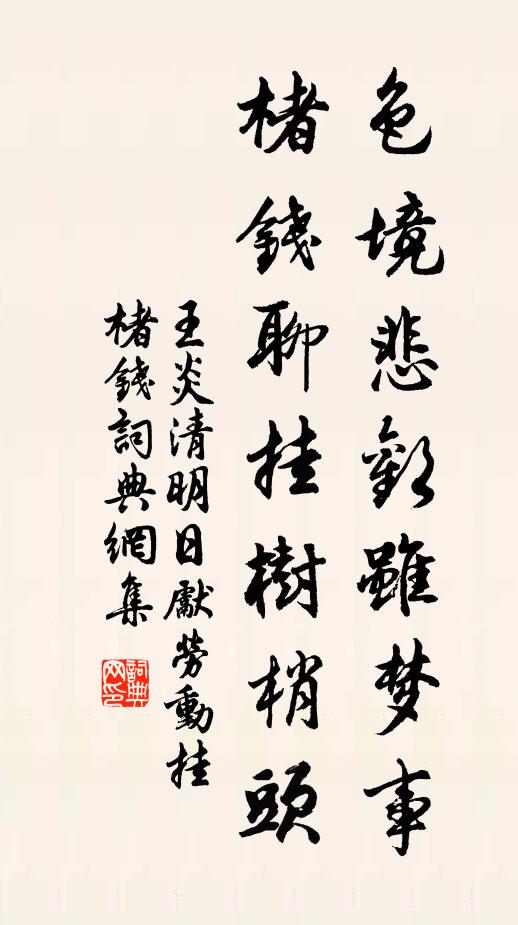 色境悲歡雖梦事
楮錢聊挂樹梢頭
王炎清明日獻勞動挂
楮錢詞典網集
詞典网印